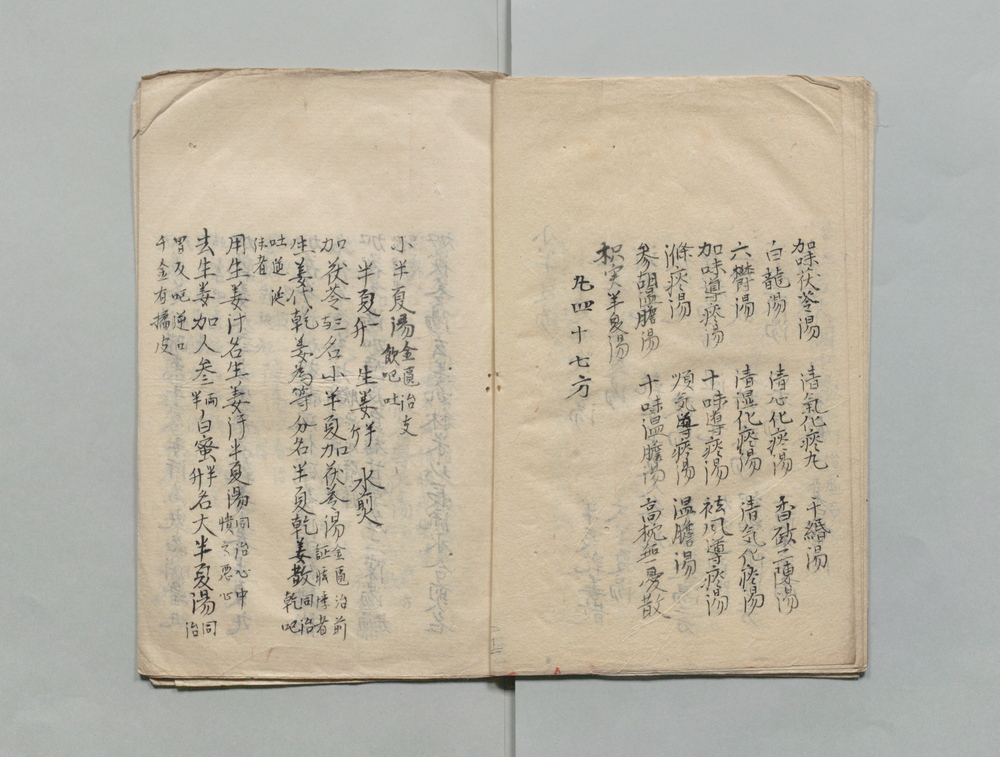 加味茯苓湯 清氣化痰丸 千緡湯
白龍湯 清心化痰湯 香砂二陳湯
六欝湯 清湿化痰湯 清気化痰湯
加味導痰湯 十味導痰湯 袪风導痰湯
滌痰湯 順気導痰湯 温膽湯
参胡温膽湯 十味温膽湯 高枕無憂散
枳实半夏湯
凡四十七方
小半夏湯金匱治支飲呕吐
半夏一升 生姜半斤 水煎
加茯苓三两名小半夏加茯苓湯金匱治前証眩悸者
生姜代乾姜為等分名半夏乾姜散同治乾呕
吐逆涎
沫者
用生姜汁名生姜汁半夏湯同治心中憒〻惡心
去生姜加人参半两白蜜半升名大半夏湯同治
胃反呕逆口
千金有橘皮